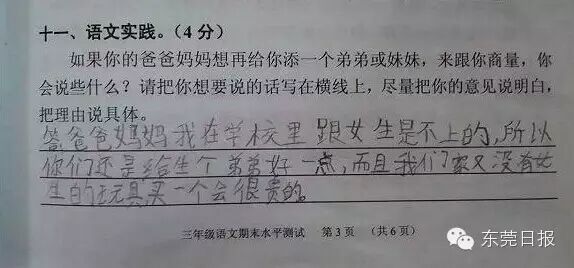 十一、语文实践。(4分)
如果你的爸爸妈妈想再给你添一个弟弟或妹妹，来跟你商量，你
会说些什么？请把你想要说的话写在横线上，尽量把你的意见说明白，
把理由说具体。
答爸爸妈妈我在学校里跟女生是不上的，所以
你们还是给生个弟弟好一点，而且我们家又没有女
生的玩具买一个会很贵的。
三年级语文期末水平测试 第3页 (共6页)
东莞日报